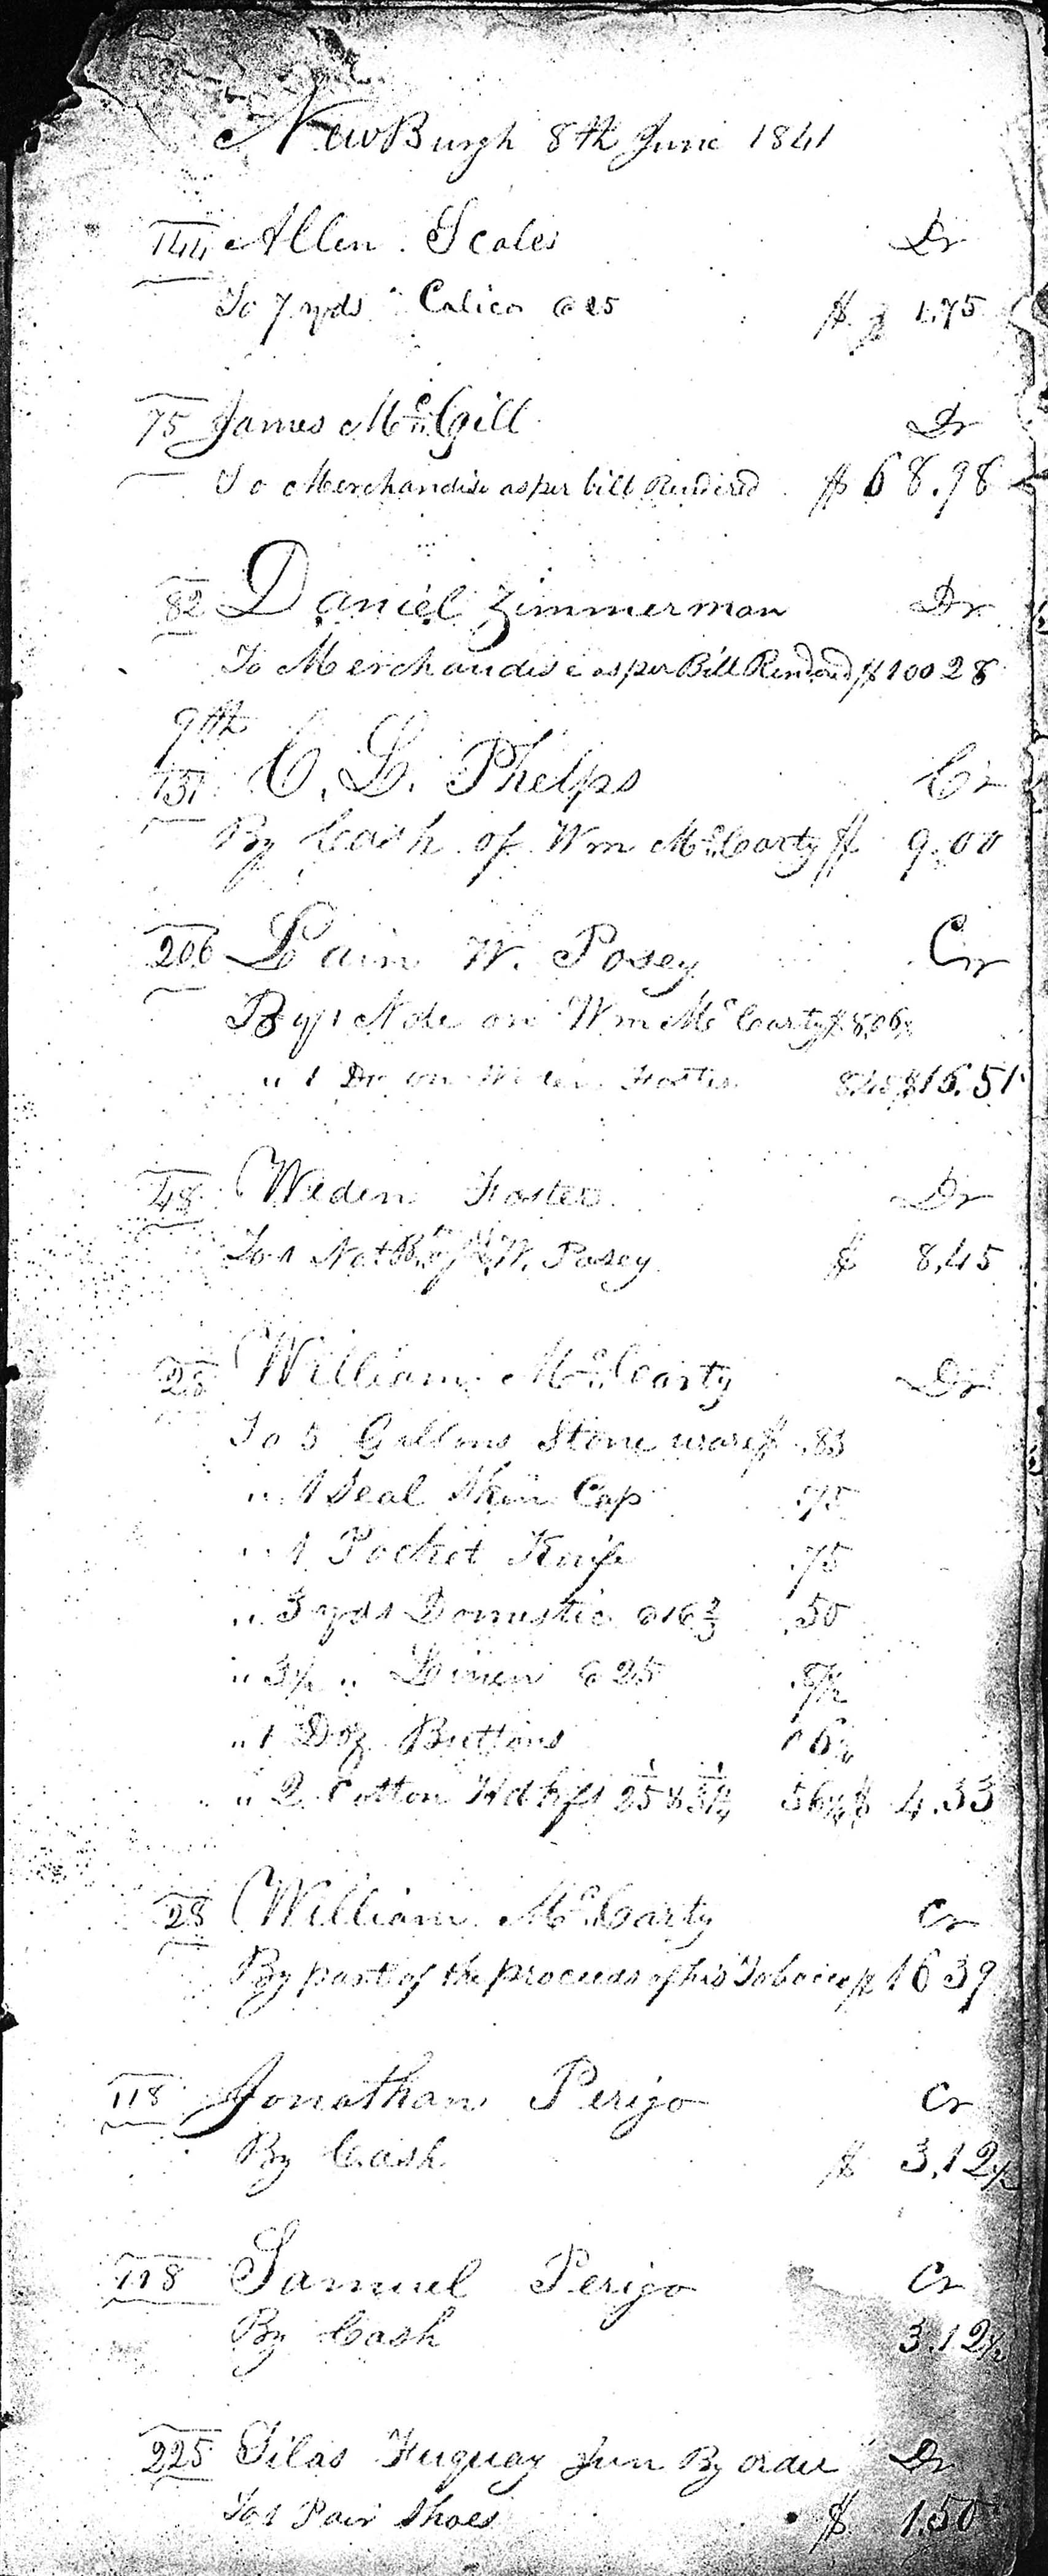 NewBurgh 8th June 1841
144 Allen Scales Dr
To 7 yds Calico @ 25 $ 1.75
75 James McGill Dr
To Merchandise as per bill Rendered $ 68.98
82 Daniel Zimmerman Dr
To Merchandise as per Bill Rendered $ 100 28
9th
131 C. L. Phelps Cr
By Cash of Wm McCarty $ 9.00
206 Lain W. Posey Cr
By 1 Note on Wm McCarty $ 8.06
" 1 Do on Weden Foster 8.45 $ 16.51
48 Weden Foster Dr
To 1 Note W. Posey $ 8,45
28 William McCarty Dr
To 5 Gallons Stone ware $ .83
" 1 Seal Skin Cap .75
" 1 Pocket Knife .75
" 3 yds Domestic @ 16 2/3 .50
" 3½ " Linen @ 25 .87½
" 1 Doz Buttons 6¼
" 2 Cotton Hdkfs 1 25 & 1 31¼ 56¼ $ 4.33
28 William McCarty Cr
By part of the proceeds of his Tobacco $ 16 39
118 Jonathan Perigo Cr
By Cash $ 3,12½
118 Samuel Perigo Cr
By Cash 3.12½
225 Silas Fuquay Jun By order Dr
To 1 Pair Shoes $ 1.50